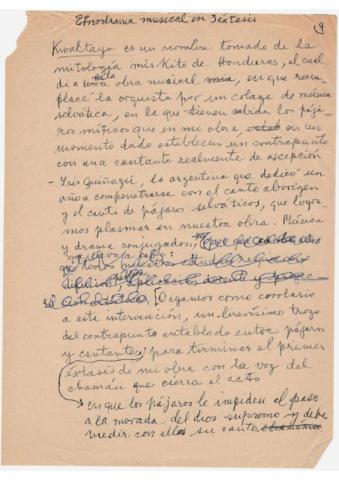 Etnodrama musical en 3 éxtasis
9
Kwaltaya es un nombre tomado de la
mitología miskito de Honduras, el cual
di a esta obra musical, en que reem-
placé la orquesta por un colage de música
selvática, en la que tienen cabida los pája-
ros míticos que en mi obra, en un
momento dado establecen un contrapunto
con una cantante realmente de excepción
- Iris Guiñazú, la argentina que dedicó un
año a compenetrarse con el canto aborigen
y el canto de pájaros selváticos, que logra-
mos plasmar en nuestra obra. Música
y drama conjugados,
[Oigamos como corolario
a esta intervención, un brevísimo trozo
del contrapunto entablado entre pájaros
y cantante, para terminar el primer
éxtasis de mi obra con la voz del
chamán que cierra el acto
en que los pájaros le impiden el paso
a la morada del dios supremo y debe
medir con ellos su canto